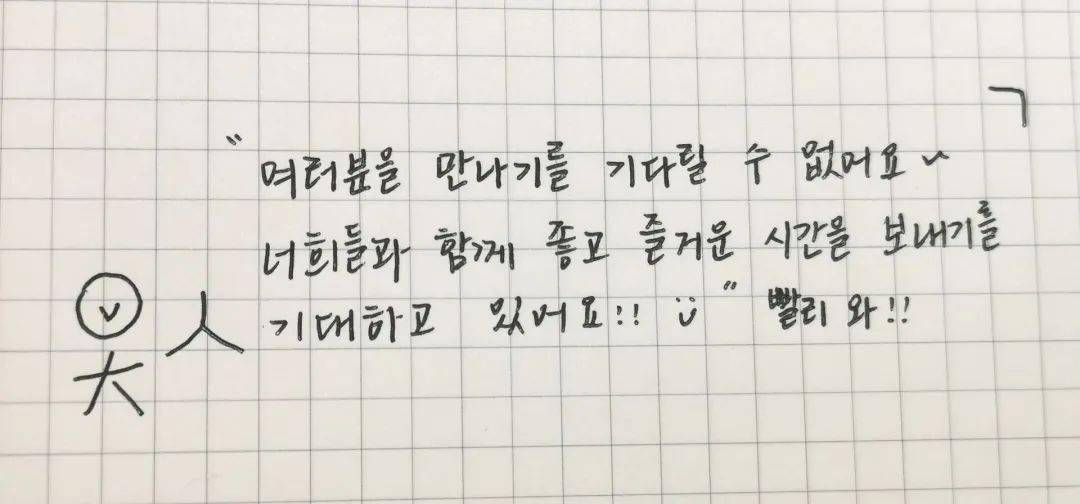 "여러분을 만나기를 기다릴 수 없어요~
너희들과 함께 좋고 즐거운 시간을 보내기를
기대하고 있어요!! ü" 빨리 와!!